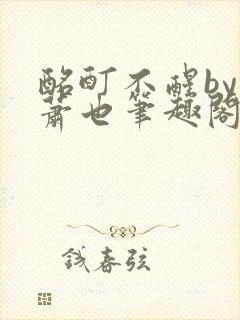 酩酊不醒by
萧也笔趣阁
钱春弦